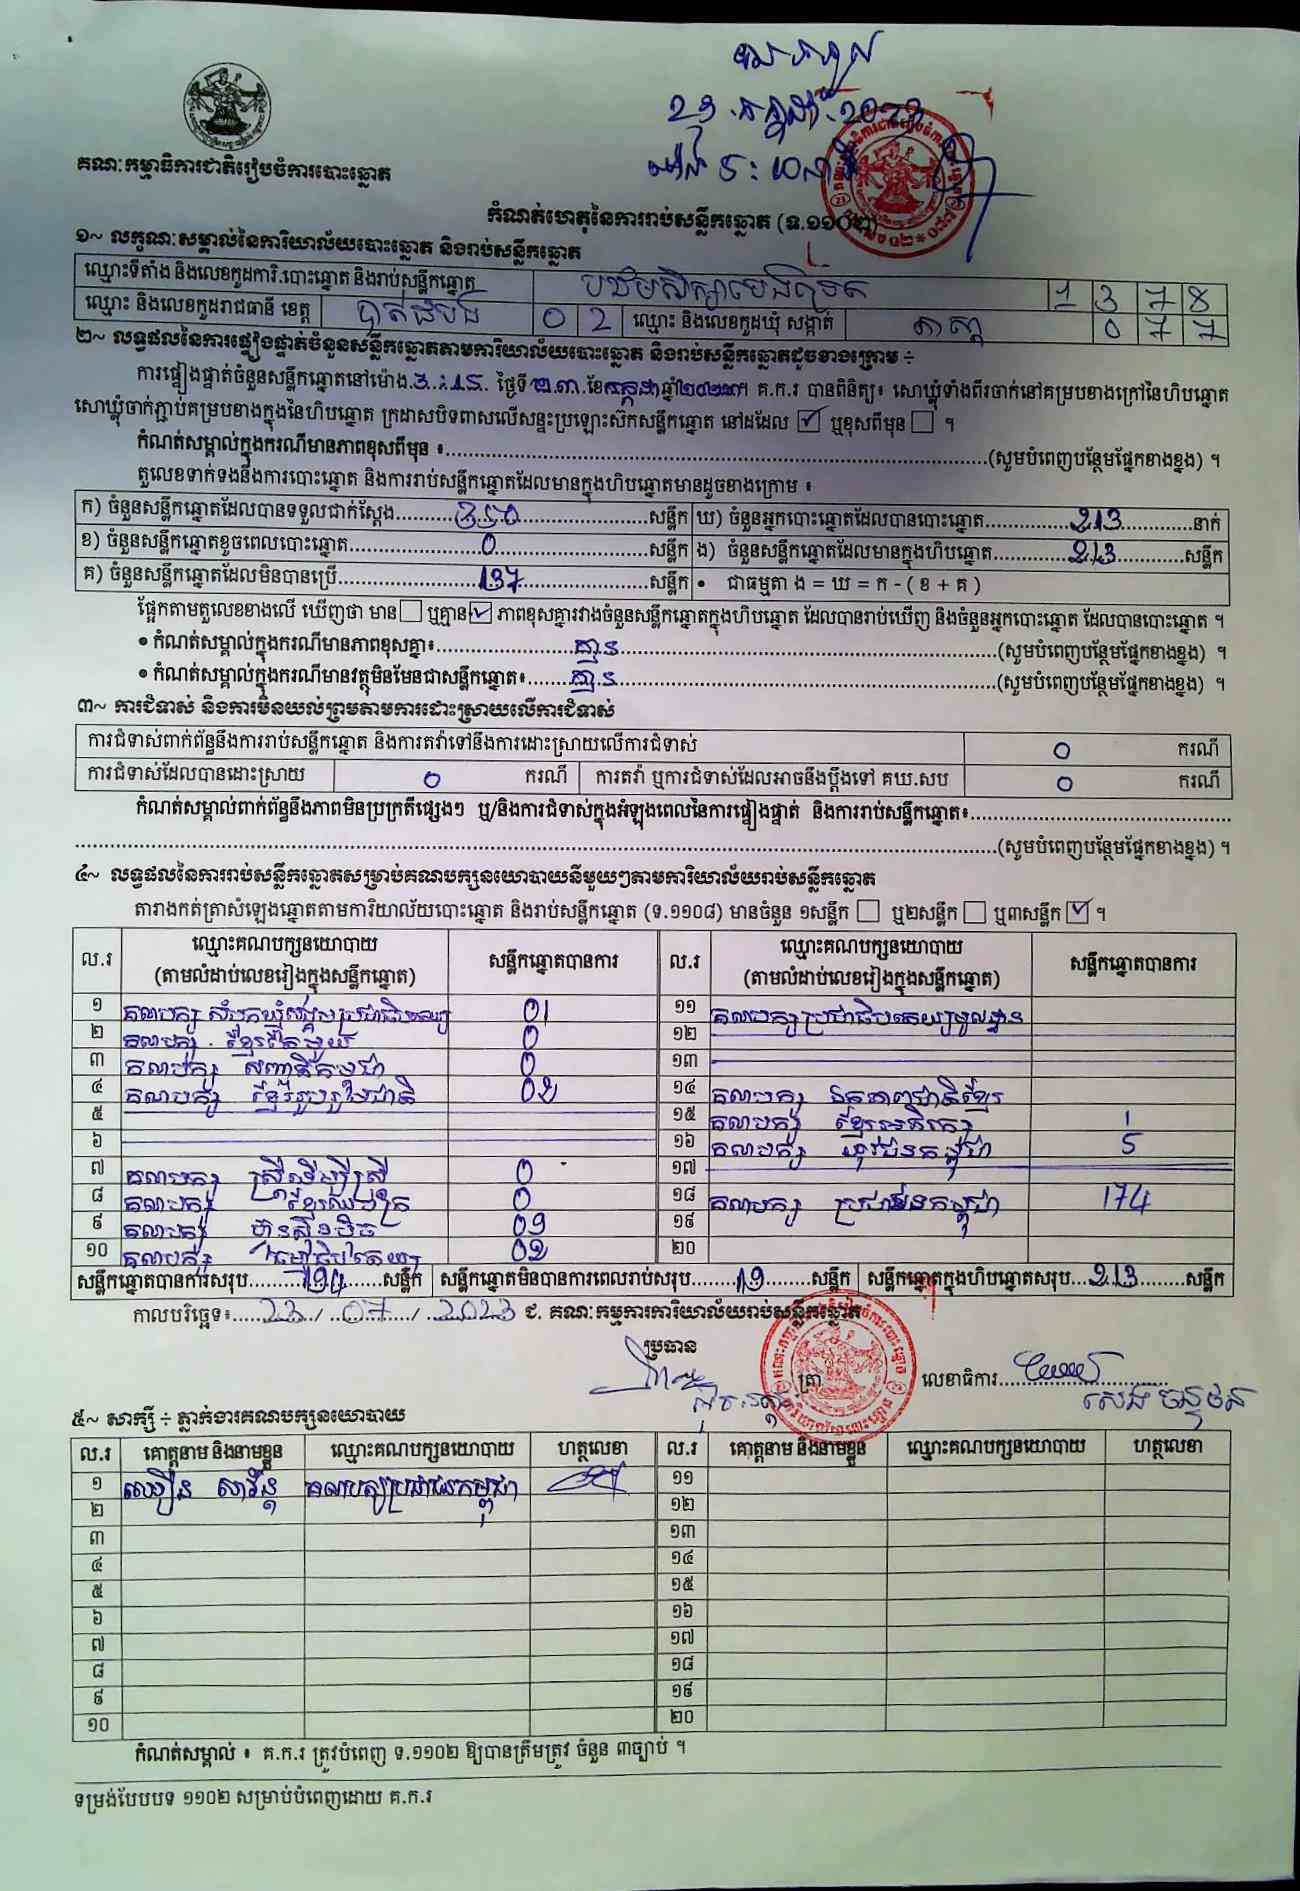 ២៣ កក្កដា ២០២៣
គណៈកម្មាធិការជាតិរៀបចំការបោះឆ្នោត
កំណត់ហេតុនៃការរាប់សន្លឹកឆ្នោត (ទ.១១០២)
១~ លក្ខណៈសម្គាល់នៃការិយាល័យបោះឆ្នោត និងរាប់សន្លឹកឆ្នោត
ឈ្មោះទីតាំង និងលេខកូដការិ.បោះឆ្នោត និងរាប់សន្លឹកឆ្នោត 1 3 7 8
ឈ្មោះ និងលេខកូដរាជធានី ខេត្ត បាត់ដំបង 0 2 ឈ្មោះ និងលេខកូដឃុំ សង្កាត់ 0 7 7
២~ លទ្ធផលនៃការផ្ទៀងផ្ទាត់ចំនួនសន្លឹកឆ្នោតតាមការិយាល័យបោះឆ្នោត និងរាប់សន្លឹកឆ្នោតដូចខាងក្រោម ÷
ការផ្ទៀងផ្ទាត់ចំនួនសន្លឹកឆ្នោតនៅម៉ោង.៣:១៥. ថ្ងៃទី២៣.ខែកក្កដាឆ្នាំ២០២៣។ គ.ក.រ បានពិនិត្យ៖ សោឃ្លុំទាំងពីរចាក់នៅគម្របខាងក្រៅនៃហិបឆ្នោត
សោឃ្លុំចាក់ភ្ជាប់គម្របខាងក្នុងនៃហិបឆ្នោត ក្រដាសបិទពាសលើសន្ទះប្រឡោះស៊កសន្លឹកឆ្នោត នៅដដែល ☑ ឬខុសពីមុន ☐ ។
កំណត់សម្គាល់ក្នុងករណីមានភាពខុសពីមុន ៖........(សូមបំពេញបន្ថែមផ្នែកខាងខ្នង) ។
តួលេខទាក់ទងនឹងការបោះឆ្នោត និងការរាប់សន្លឹកឆ្នោតដែលមានក្នុងហិបឆ្នោតមានដូចខាងក្រោម ៖
ក) ចំនួនសន្លឹកឆ្នោតដែលបានទទួលជាក់ស្តែង....350....សន្លឹក ឃ) ចំនួនអ្នកបោះឆ្នោតដែលបានបោះឆ្នោត....213....នាក់
ខ) ចំនួនសន្លឹកឆ្នោតខូចពេលបោះឆ្នោត....0....សន្លឹក ង) ចំនួនសន្លឹកឆ្នោតដែលមានក្នុងហិបឆ្នោត....213....សន្លឹក
គ) ចំនួនសន្លឹកឆ្នោតដែលមិនបានប្រើ....137....សន្លឹក • ជាធម្មតា ង = ឃ = ក - ( ខ + គ )
ផ្អែកតាមតួលេខខាងលើ ឃើញថា មាន ☐ ឬគ្មាន ☑ ភាពខុសគ្នារវាងចំនួនសន្លឹកឆ្នោតក្នុងហិបឆ្នោត ដែលបានរាប់ឃើញ និងចំនួនអ្នកបោះឆ្នោត ដែលបានបោះឆ្នោត ។
• កំណត់សម្គាល់ក្នុងករណីមានភាពខុសគ្នា៖....គ្មាន....(សូមបំពេញបន្ថែមផ្នែកខាងខ្នង) ។
• កំណត់សម្គាល់ក្នុងករណីមានវត្ថុមិនមែនជាសន្លឹកឆ្នោត៖....គ្មាន....(សូមបំពេញបន្ថែមផ្នែកខាងខ្នង) ។
៣~ ការជំទាស់ និងការមិនយល់ព្រមតាមការដោះស្រាយលើការជំទាស់
ការជំទាស់ពាក់ព័ន្ធនឹងការរាប់សន្លឹកឆ្នោត និងការតវ៉ាទៅនឹងការដោះស្រាយលើការជំទាស់ 0 ករណី
ការជំទាស់ដែលបានដោះស្រាយ 0 ករណី ការតវ៉ា ឬការជំទាស់ដែលអាចនឹងប្តឹងទៅ គឃ.សប 0 ករណី
កំណត់សម្គាល់ពាក់ព័ន្ធនឹងភាពមិនប្រក្រតីផ្សេងៗ ឬ/និងការជំទាស់ក្នុងអំឡុងពេលនៃការផ្ទៀងផ្ទាត់ និងការរាប់សន្លឹកឆ្នោត៖........
........(សូមបំពេញបន្ថែមផ្នែកខាងខ្នង) ។
៤~ លទ្ធផលនៃការរាប់សន្លឹកឆ្នោតសម្រាប់គណបក្សនយោបាយនីមួយៗតាមការិយាល័យរាប់សន្លឹកឆ្នោត
តារាងកត់ត្រាសំឡេងឆ្នោតតាមការិយាល័យបោះឆ្នោត និងរាប់សន្លឹកឆ្នោត (ទ.១១០៨) មានចំនួន ១សន្លឹក ☐ ឬ២សន្លឹក ☐ ឬ៣សន្លឹក ☑ ។
ល.រ ឈ្មោះគណបក្សនយោបាយ (តាមលំដាប់លេខរៀងក្នុងសន្លឹកឆ្នោត) សន្លឹកឆ្នោតបានការ ល.រ ឈ្មោះគណបក្សនយោបាយ (តាមលំដាប់លេខរៀងក្នុងសន្លឹកឆ្នោត) សន្លឹកឆ្នោតបានការ
១ គណបក្ស សំបុកឃ្មុំសង្គមប្រជាធិបតេយ្យ 01 ១១ គណបក្សប្រជាធិបតេយ្យមូលដ្ឋាន
២ គណបក្ស ខ្មែររួបរួម 0 ១២
៣ គណបក្ស សញ្ជាតិកម្ពុជា 0 ១៣
៤ គណបក្ស ខ្មែររួបរួមជាតិ 02 ១៤ គណបក្ស ឯកភាពជាតិខ្មែរ
៥ ១៥ គណបក្ស ខ្មែរអភិរក្ស 1
៦ ១៦ គណបក្ស យុវជនកម្ពុជា 5
៧ គណបក្ស ស្ត្រីដើម្បីស្ត្រី 0 ១៧
៨ គណបក្ស ខ្មែរឈប់ក្រ 0 ១៨ គណបក្ស ប្រជាជនកម្ពុជា 174
៩ គណបក្ស ហ្វ៊ុនស៊ិនប៉ិច 09 ១៩
១០ គណបក្ស ធម្មាធិបតេយ្យ 02 ២០
សន្លឹកឆ្នោតបានការសរុប....194....សន្លឹក សន្លឹកឆ្នោតមិនបានការពេលរាប់សរុប....19....សន្លឹក សន្លឹកឆ្នោតក្នុងហិបឆ្នោតសរុប....213....សន្លឹក
កាលបរិច្ឆេទ៖ 23 / 07 / 2023 ជ. គណៈកម្មការការិយាល័យរាប់សន្លឹកឆ្នោត
ប្រធាន
ត្រា
លេខាធិការ........
សេង ចន្ទថន
៥~ សាក្សី ÷ ភ្នាក់ងារគណបក្សនយោបាយ
ល.រ គោត្តនាម និងនាមខ្លួន ឈ្មោះគណបក្សនយោបាយ ហត្ថលេខា ល.រ គោត្តនាម និងនាមខ្លួន ឈ្មោះគណបក្សនយោបាយ ហត្ថលេខា
១ គណបក្សប្រជាជនកម្ពុជា ១១
២ ១២
៣ ១៣
៤ ១៤
៥ ១៥
៦ ១៦
៧ ១៧
៨ ១៨
៩ ១៩
១០ ២០
កំណត់សម្គាល់ ៖ គ.ក.រ ត្រូវបំពេញ ទ.១១០២ ឱ្យបានត្រឹមត្រូវ ចំនួន ៣ច្បាប់ ។
ទម្រង់បែបបទ ១១០២ សម្រាប់បំពេញដោយ គ.ក.រ